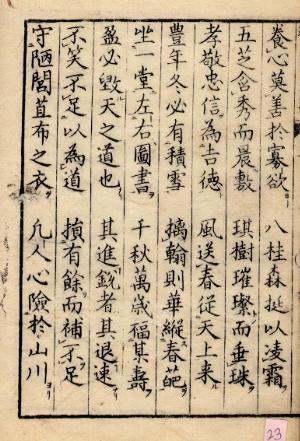 養心莫善於寡欲 八桂森挺以凌霜
五芝含秀而晨敷 琪樹璀璨而垂珠
孝敬忠信為吉德 風送春從天上来
豊年冬必有積雪 摛翰則華縱春葩
坐一堂左右圖書 千秋萬歳福其壽
盈必毀天之道也 其進鋭者其退速
不笑不足以為道 損有餘而補不足
守陋閭苴布之衣 凡人心險於山川
23